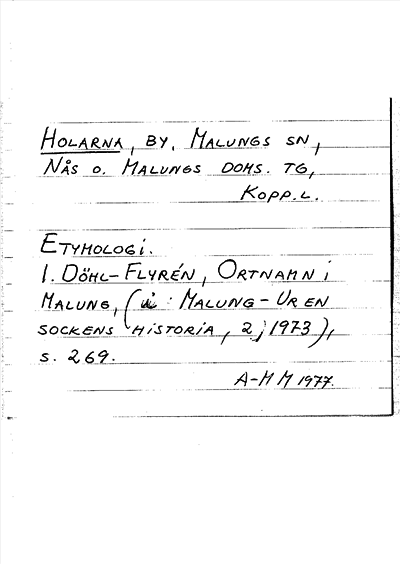 HOLARNA, BY, MALUNGS SN,
NÅS O. MALUNGS DOMS. TG,
KOPP.L.
ETYMOLOGI.
I. DÖHL-FLYRÉN, ORTNAMN I
MALUNG, (i: MALUNG-UR EN
SOCKENS HISTORIA, 2, 1973),
S. 269.
A-M M 1977.